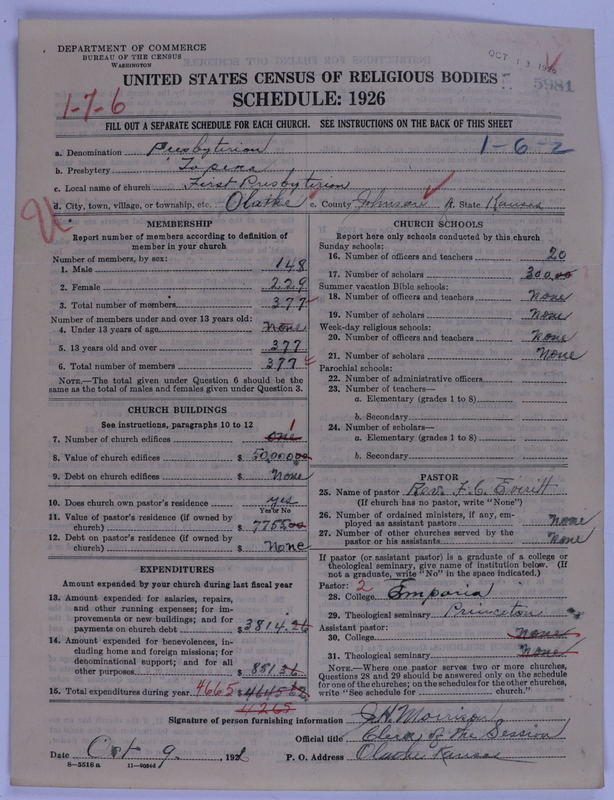 DEPARTMENT OF COMMERCE
BUREAU OF THE CENSUS
WASHINGTON
OCT 13 1926
5981
UNITED STATES CENSUS OF RELIGIOUS BODIES
SCHEDULE: 1926
1-7-6
FILL OUT A SEPARATE SCHEDULE FOR EACH CHURCH. SEE INSTRUCTIONS ON THE BACK OF THIS SHEET
a. Denomination Presbyterion
1-6-2
b. Presbytery Topeka
c. Local name of church First Presbyterion
d. City, town, village, or township, etc. Olathe e. County Johnson f. State Kansas
MEMBERSHIP
Report number of members according to definition of
member in your church
Number of members, by sex:
1. Male 148
2. Female 229
3. Total number of members 377
Number of members under and over 13 years old:
4. Under 13 years of age None
5. 13 years old and over 377
6. Total number of members 377
NOTE.—The total given under Question 6 should be
same as the total of males and females given under Question 3.
CHURCH BUILDINGS
See instructions, paragraphs 10 to 12
1
7. Number of church edifices one
8. Value of church edifices $ 50,000.00
9. Debt on church edifices $ None
10. Does church own pastor's residence yes
Yes or No
11. Value of pastor's residence (if owned by
church) $ 7755.00
12. Debt on pastor's residence (if owned by
church) $ None
EXPENDITURES
Amount expended by your church during last fiscal year
13. Amount expended for salaries, repairs,
and other running expenses; for im-
provements or new buildings; and for
payments on church debt $ 3814.26
14. Amount expended for benevolences, in-
cluding home and foreign missions; for
denominational support; and for all
other purposes $
15. Total expenditures during year 4665 $
4265
CHURCH SCHOOLS
Report here only schools conducted by this church
Sunday schools:
16. Number of officers and teachers 20
17. Number of scholars 300.00
Summer vacation Bible schools:
18. Number of officers and teachers None
19. Number of scholars None
Week-day religious schools:
20. Number of officers and teachers None
21. Number of scholars None
Parochial schools:
22. Number of administrative officers
23. Number of teachers—
a. Elementary (grades 1 to 8)
b. Secondary
24. Number of scholars—
a. Elementary (grades 1 to 8)
b. Secondary
PASTOR
25. Name of pastor Rev. F. C. Everitt
(If church has no pastor, write "None")
26. Number of ordained ministers, if any, em-
ployed as assistant pastors None
27. Number of other churches served by the
pastor or his assistants None
If pastor (or assistant pastor) is a graduate of a college or
theological seminary, give name of institution below. (If
not a graduate, write "No" in the space indicated.)
Pastor: 2
28. College Emporia
29. Theological seminary Princeton
Assistant pastor:
30. College None
31. Theological seminary None
NOTE.—Where one pastor serves two or more churches,
Questions 28 and 29 should be answered only on the schedule
for one of the churches; on the schedules for the other churches,
write "See schedule for church."
Signature of person furnishing information J. H. Morrison
Official title Clerk of the Session
Date Oct 9, 1926 P. O. Address Olathe Kansas
8-5518a 11-9054d